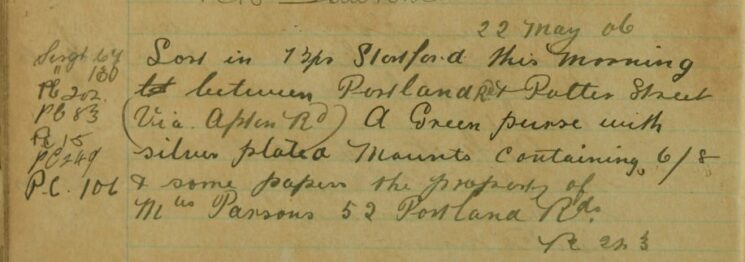 22 May 06
Sergt 67
" 130
PC 202
PC 83
PC 15
PC 249
P.C. 101
Lost in B/p Stortford this morning
between Portland Rd & Potter Street
(Via Apton Rd) A Green purse with
silver plated Mounts Containing 6/8
& some papers the property of
Mrs Parsons 52 Portland Rd